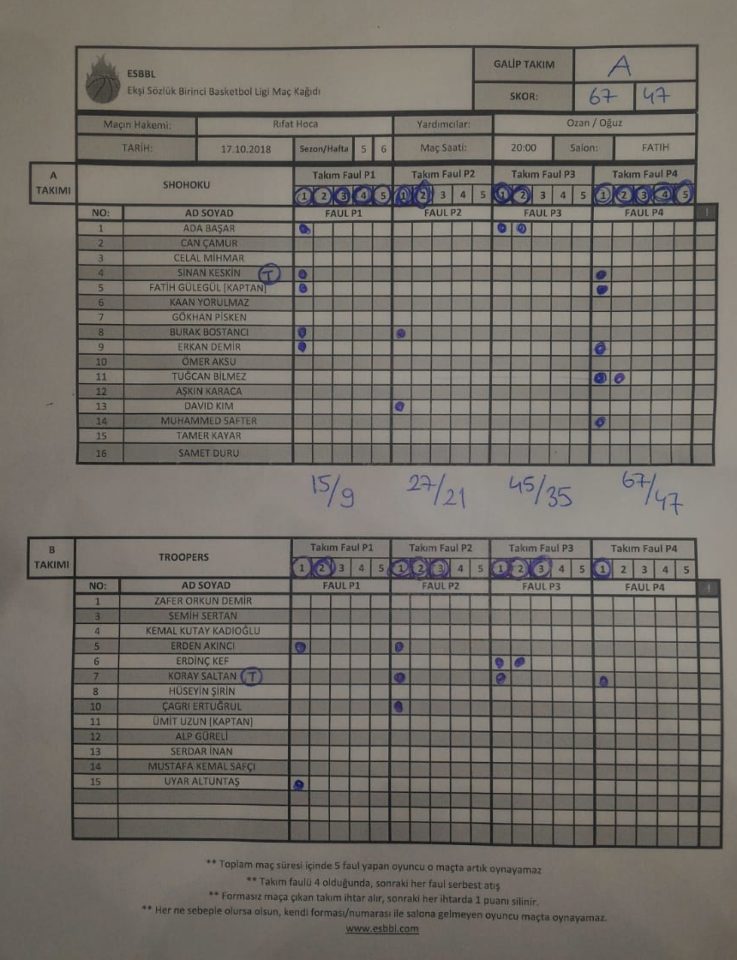 ESBBL
Ekşi Sözlük Birinci Basketbol Ligi Maç Kağıdı
GALİP TAKIM A
SKOR: 67 47
Maçın Hakemi: Rıfat Hoca Yardımcılar: Ozan / Oğuz
TARİH: 17.10.2018 Sezon/Hafta 5 6 Maç Saati: 20:00 Salon: FATIH
A TAKIMI SHOHOKU Takım Faul P1 Takım Faul P2 Takım Faul P3 Takım Faul P4
1 2 3 4 5 1 2 3 4 5 1 2 3 4 5 1 2 3 4 5
NO: AD SOYAD FAUL P1 FAUL P2 FAUL P3 FAUL P4 !
1 ADA BAŞAR
2 CAN ÇAMUR
3 CELAL MİHMAR
4 SİNAN KESKİN T
5 FATİH GÜLEGÜL [KAPTAN]
6 KAAN YORULMAZ
7 GÖKHAN PİSKEN
8 BURAK BOSTANCI
9 ERKAN DEMİR
10 ÖMER AKSU
11 TUĞCAN BİLMEZ
12 AŞKIN KARACA
13 DAVID KIM
14 MUHAMMED SAFTER
15 TAMER KAYAR
16 SAMET DURU
15/9 27/21 45/35 67/47
B TAKIMI TROOPERS Takım Faul P1 Takım Faul P2 Takım Faul P3 Takım Faul P4
1 2 3 4 5 1 2 3 4 5 1 2 3 4 5 1 2 3 4 5
NO: AD SOYAD FAUL P1 FAUL P2 FAUL P3 FAUL P4 !
1 ZAFER ORKUN DEMİR
3 SEMİH SERTAN
4 KEMAL KUTAY KADIOĞLU
5 ERDEN AKINCI
6 ERDİNÇ KEF
7 KORAY SALTAN T
8 HÜSEYİN ŞİRİN
10 ÇAGRI ERTUĞRUL
11 ÜMİT UZUN [KAPTAN]
12 ALP GÜRELİ
13 SERDAR İNAN
14 MUSTAFA KEMAL SAFÇI
15 UYAR ALTUNTAŞ
** Toplam maç süresi içinde 5 faul yapan oyuncu o maçta artık oynayamaz
** Takım faulü 4 olduğunda, sonraki her faul serbest atış
** Formasız maça çıkan takım ihtar alır, sonraki her ihtarda 1 puanı silinir.
** Her ne sebeple olursa olsun, kendi forması/numarası ile salona gelmeyen oyuncu maçta oynayamaz.
www.esbbl.com